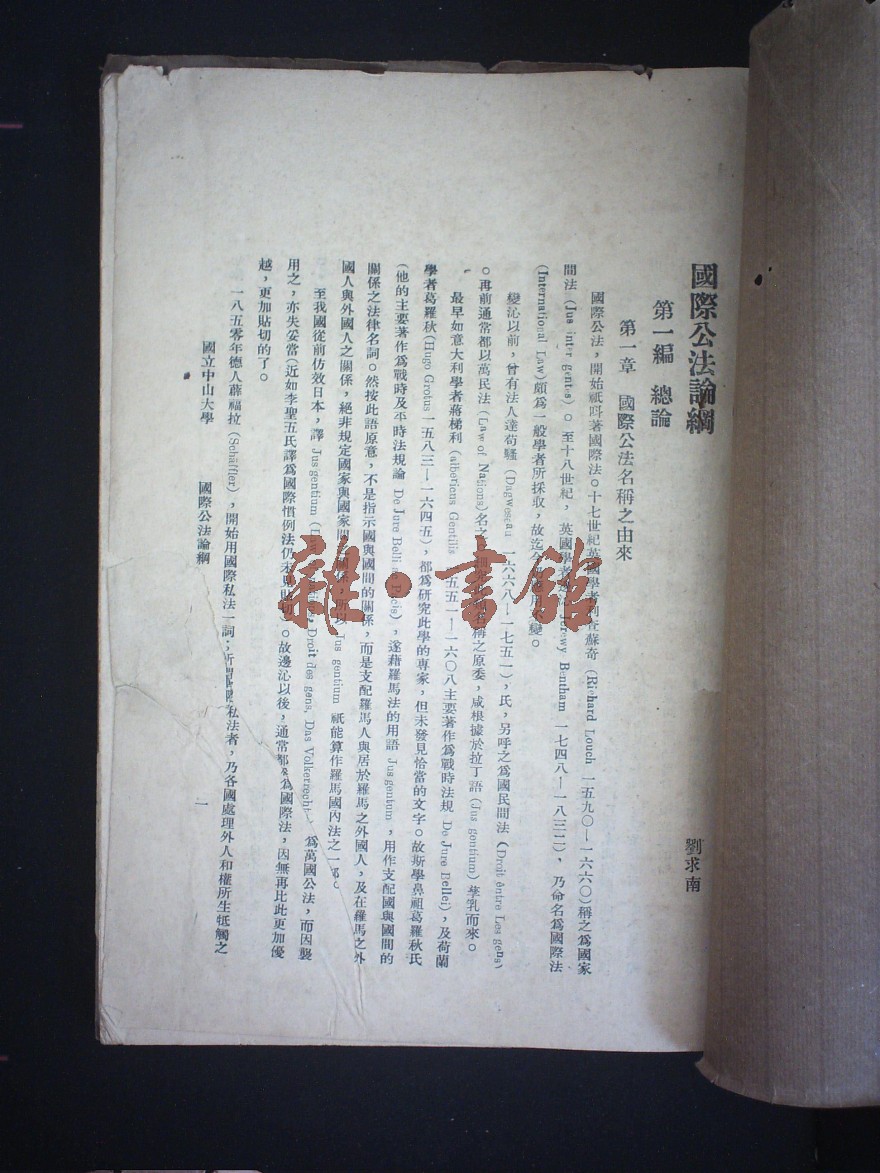 國際公法論綱
劉求南
第一編 總論
第一章 國際公法名稱之由來
國際公法,開始祇呌著國際法。十七世紀英國學者利查蘇奇(Richard Louch 一五九〇—一六六〇)稱之為國家
間法(Jus inter gentes)。至十八世紀,英國學者邊沁 Jerewy Bentham 一七四八—一八三二),乃命名為國際法
(International Law)頗為一般學者所採取,故迄今
變。
變沁以前,曾有法人達苟騷(Dagwesgau 一六六八—一七五一),氏,另呼之為國民間法(Droit éntre Les gens)
。再前通常都以萬民法(Law of Nations)名之 稱之原委,咸根據於拉丁語(Jus gontium)孳乳而來。
最早如意大利學者蔣梯利(albericus Gentilis 一五五一—一六〇八主要著作為戰時法規 De Jure Bellei),及荷蘭
學者葛羅秋(Hugo Grotus一五八三—一六四五),都為研究此學的專家,但未發見恰當的文字。故斯學鼻祖葛羅秋氏
(他的主要著作為戰時及平時法規論 De Jure Belli ac Pacis),遂藉羅馬法的用語 Jus gentum,用作支配國與國間的
關係之法律名詞。然按此語原意,不是指示國與國間的關係,而是支配羅馬人與居於羅馬之外國人,及在羅馬之外
國人與外國人之關係,絕非規定國家與國家間之關係,所以 Jus gentium 祇能算作羅馬國內法之一部。
至我國從前仿效日本,譯 Jus gentium (Law of nations, Droit des gens, Das Volkerrecht) 為萬國公法,而因襲
用之,亦失妥當(近如李聖五氏譯為國際慣例法仍未見貼切)。故邊沁以後,通常都改為國際法,因無再比此更加優
越,更加貼切的了。
一八五零年德人薜福拉(Schäffler),開始用國際私法一詞;所謂國際私法者,乃各國處理外人和權所生牴觸之
國立中山大學 國際公法論綱 一
雜·書館